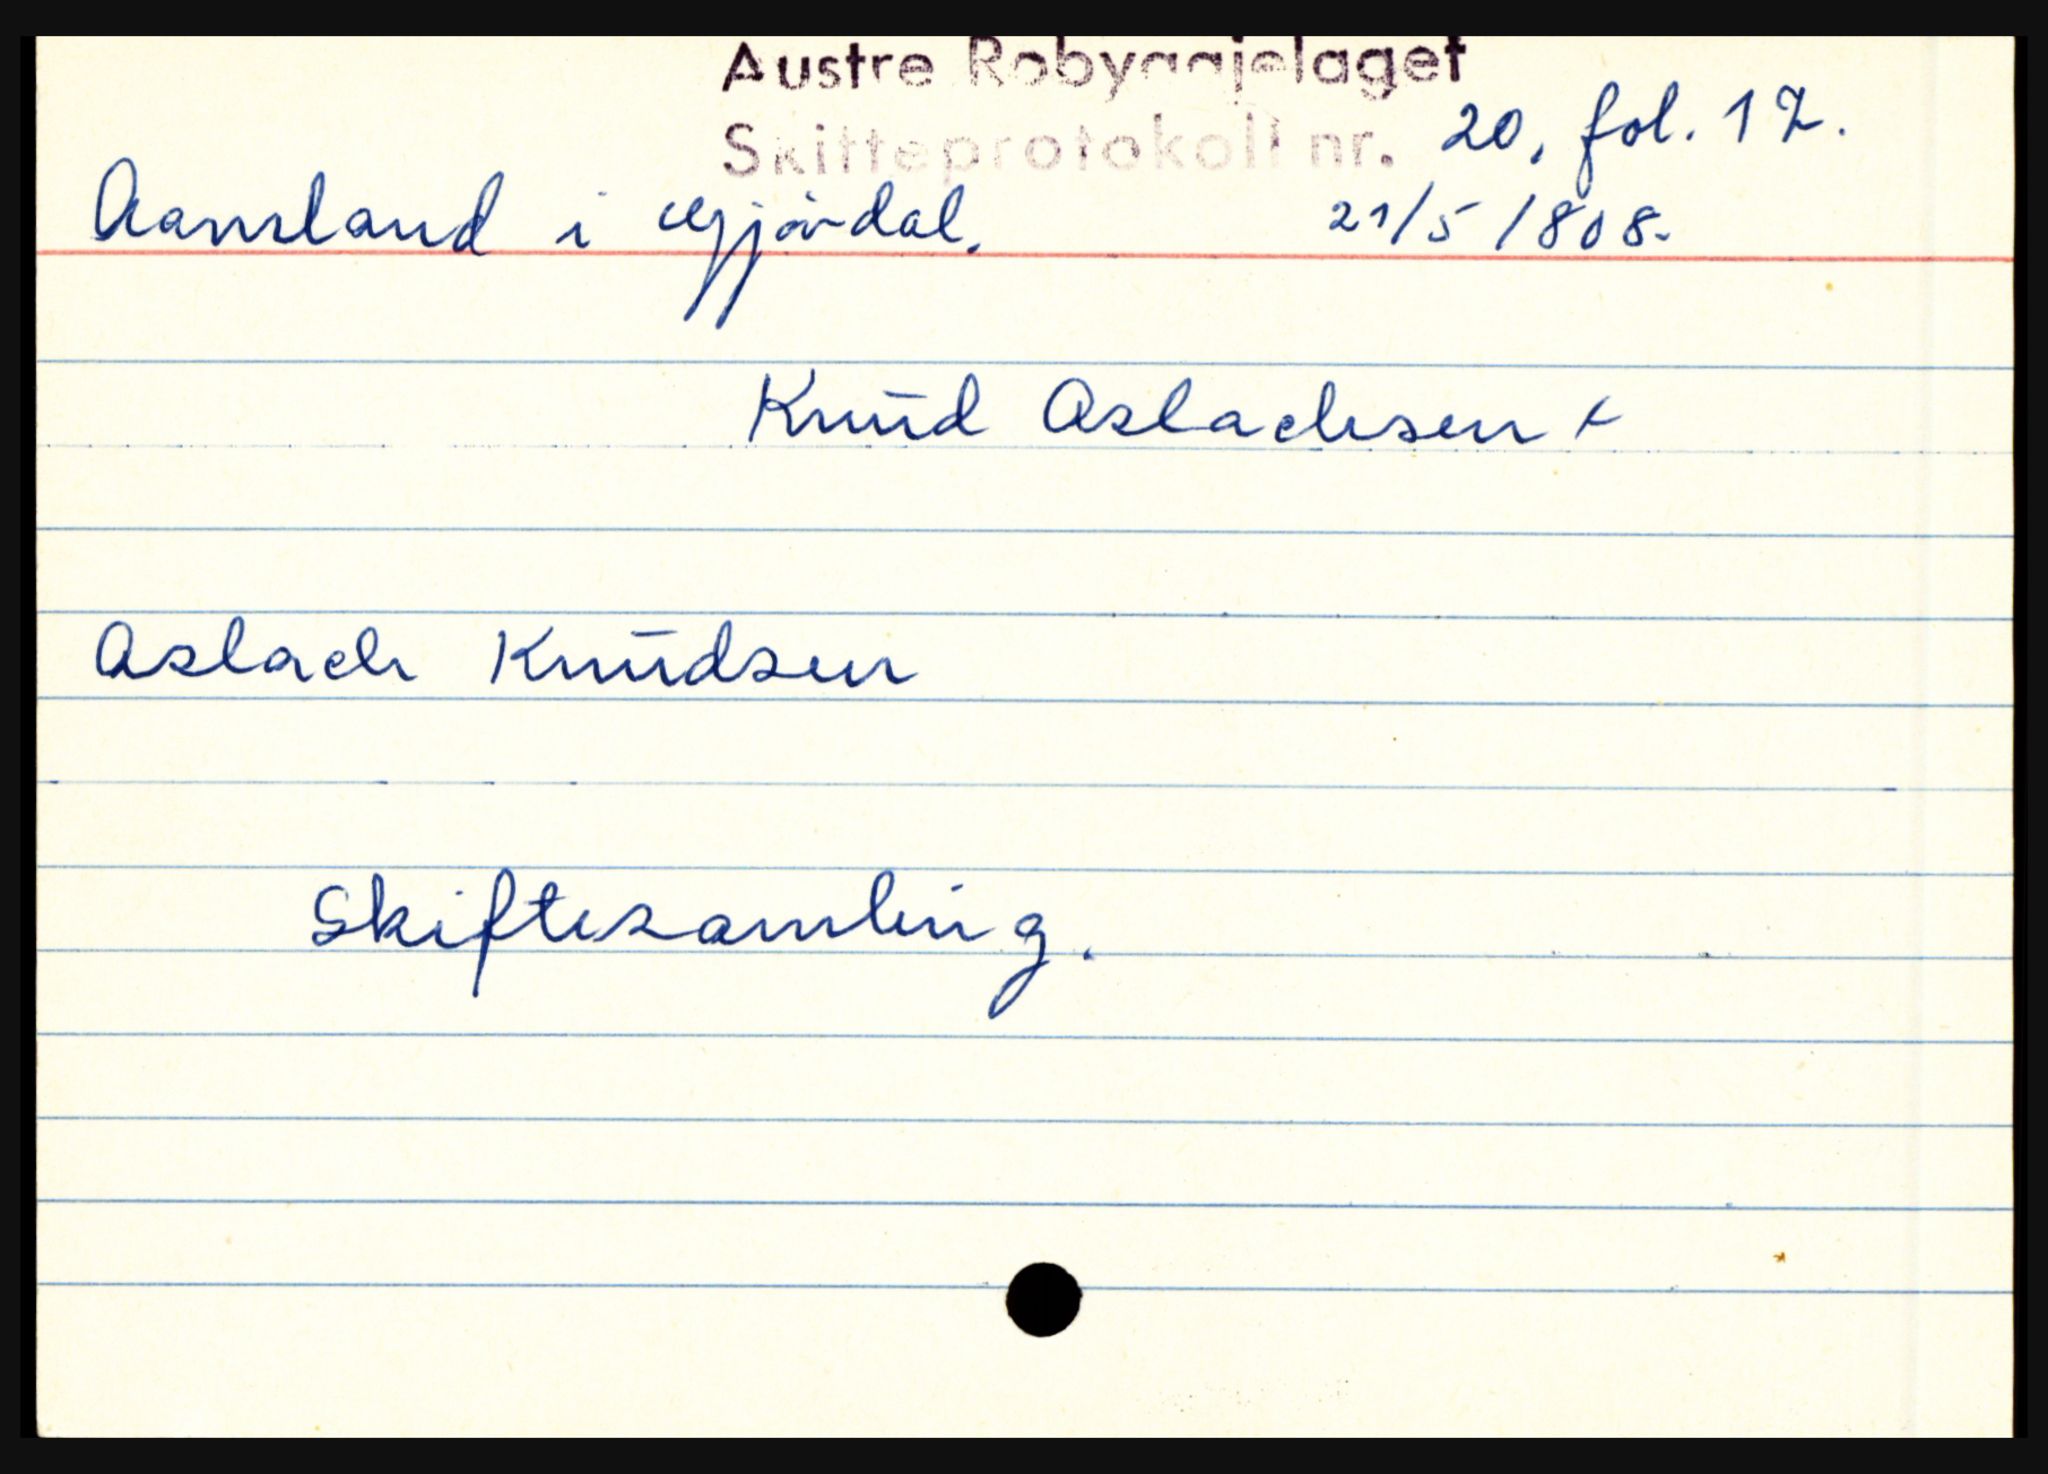 Austre Robyggjelaget
Skifteprotokoll nr. 20, fol. 17.
Aamland i Gjövdal. 21/5 1808.
Knud Aslachsen +
Aslach Knudsen
Skiftesamling.